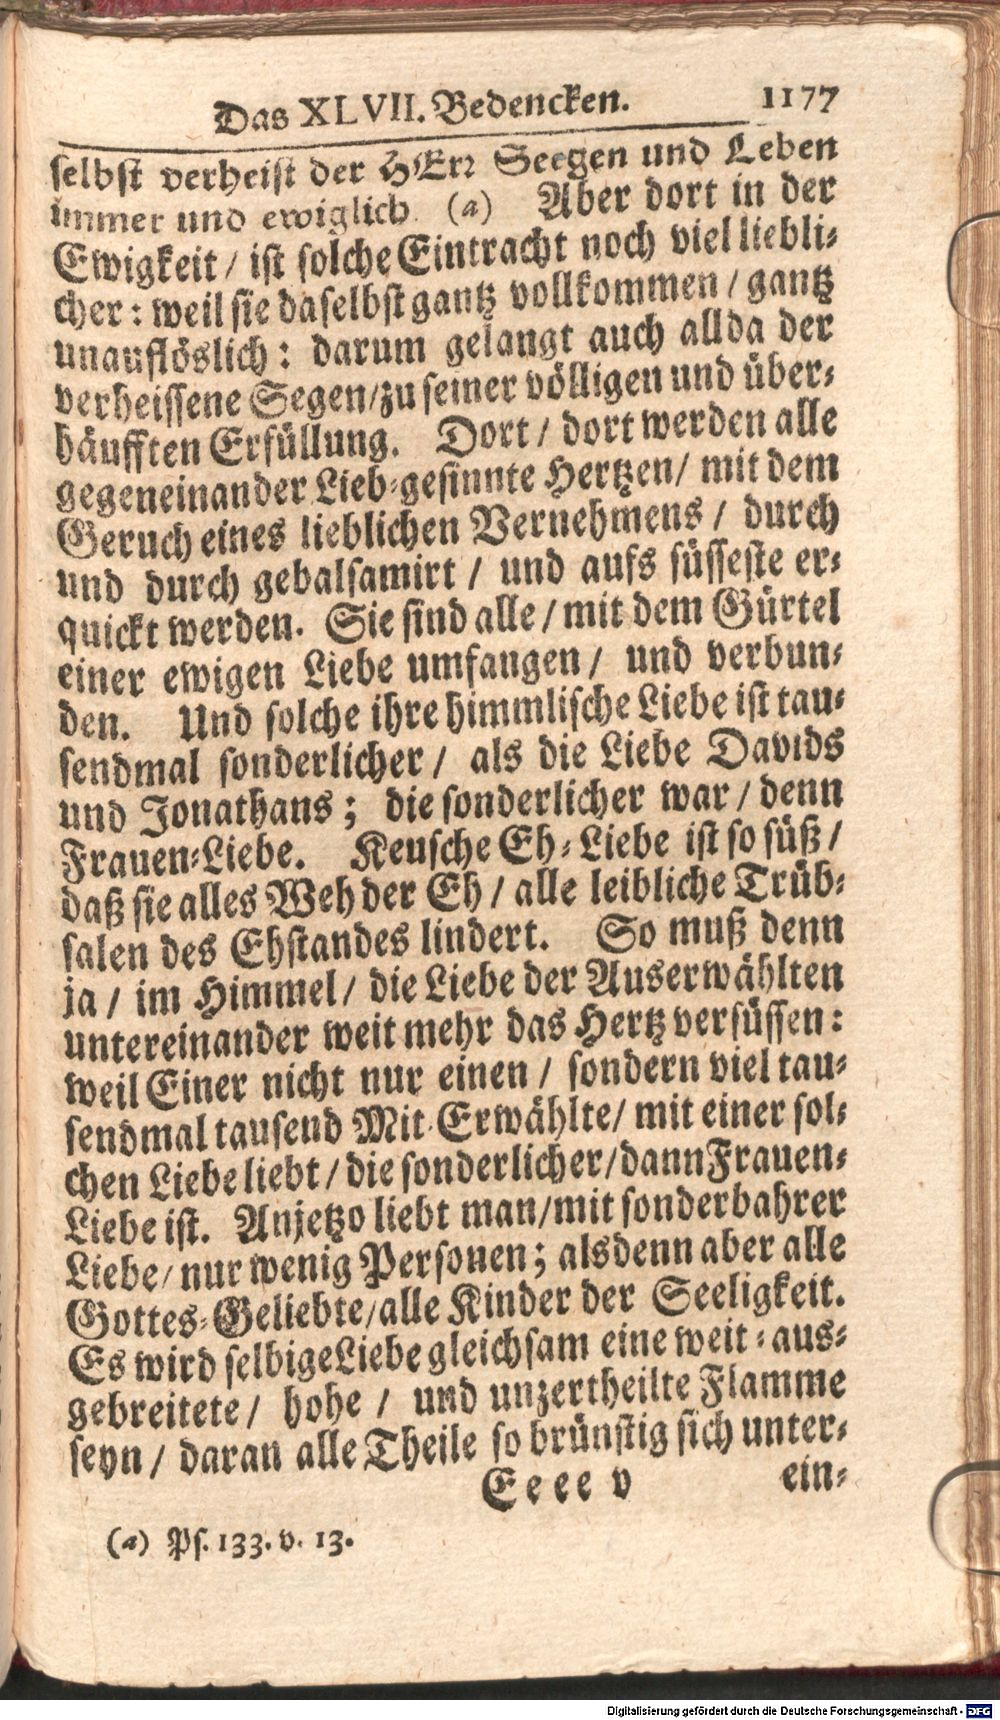 Das XLVII. Bedencken. 1177
selbst verheist der HErr Seegen und Leben
immer und ewiglich. (a) Aber dort in der
Ewigkeit / ist solche Eintracht noch viel liebli-
cher: weil sie daselbst gantz vollkommen / gantz
unauflöslich: darum gelangt auch allda der
verheissene Segen / zu seiner völligen und über-
häufften Erfüllung. Dort / dort werden alle
gegeneinander Lieb-gesinnte Hertzen / mit dem
Geruch eines lieblichen Vernehmens / durch
und durch gebalsamirt / und aufs süsseste er-
quickt werden. Sie sind alle / mit dem Gürtel
einer ewigen Liebe umfangen / und verbun-
den. Und solche ihre himmlische Liebe ist tau-
sendmal sonderlicher / als die Liebe Davids
und Jonathans; die sonderlicher war / denn
Frauen-Liebe. Keusche Eh-Liebe ist so süß /
daß sie alles Weh der Eh / alle leibliche Trüb-
salen des Ehstandes lindert. So muß denn
ja / im Himmel / die Liebe der Auserwählten
untereinander weit mehr das Hertz versüssen:
weil Einer nicht nur einen / sondern viel tau-
sendmal tausend Mit-Erwählte / mit einer sol-
chen Liebe liebt / die sonderlicher / dann Frauen-
Liebe ist. Anjetzo liebt man / mit sonderbahrer
Liebe / nur wenig Personen; alsdenn aber alle
Gottes-Geliebte / alle Kinder der Seeligkeit.
Es wird selbige Liebe gleichsam eine weit-aus-
gebreitete / hohe / und unzertheilte Flamme
seyn / daran alle Theile so brünstig sich unter-
Eeee v ein-
(a) Ps. 133. v. 13.
Digitalisierung gefördert durch die Deutsche Forschungsgemeinschaft - DFG